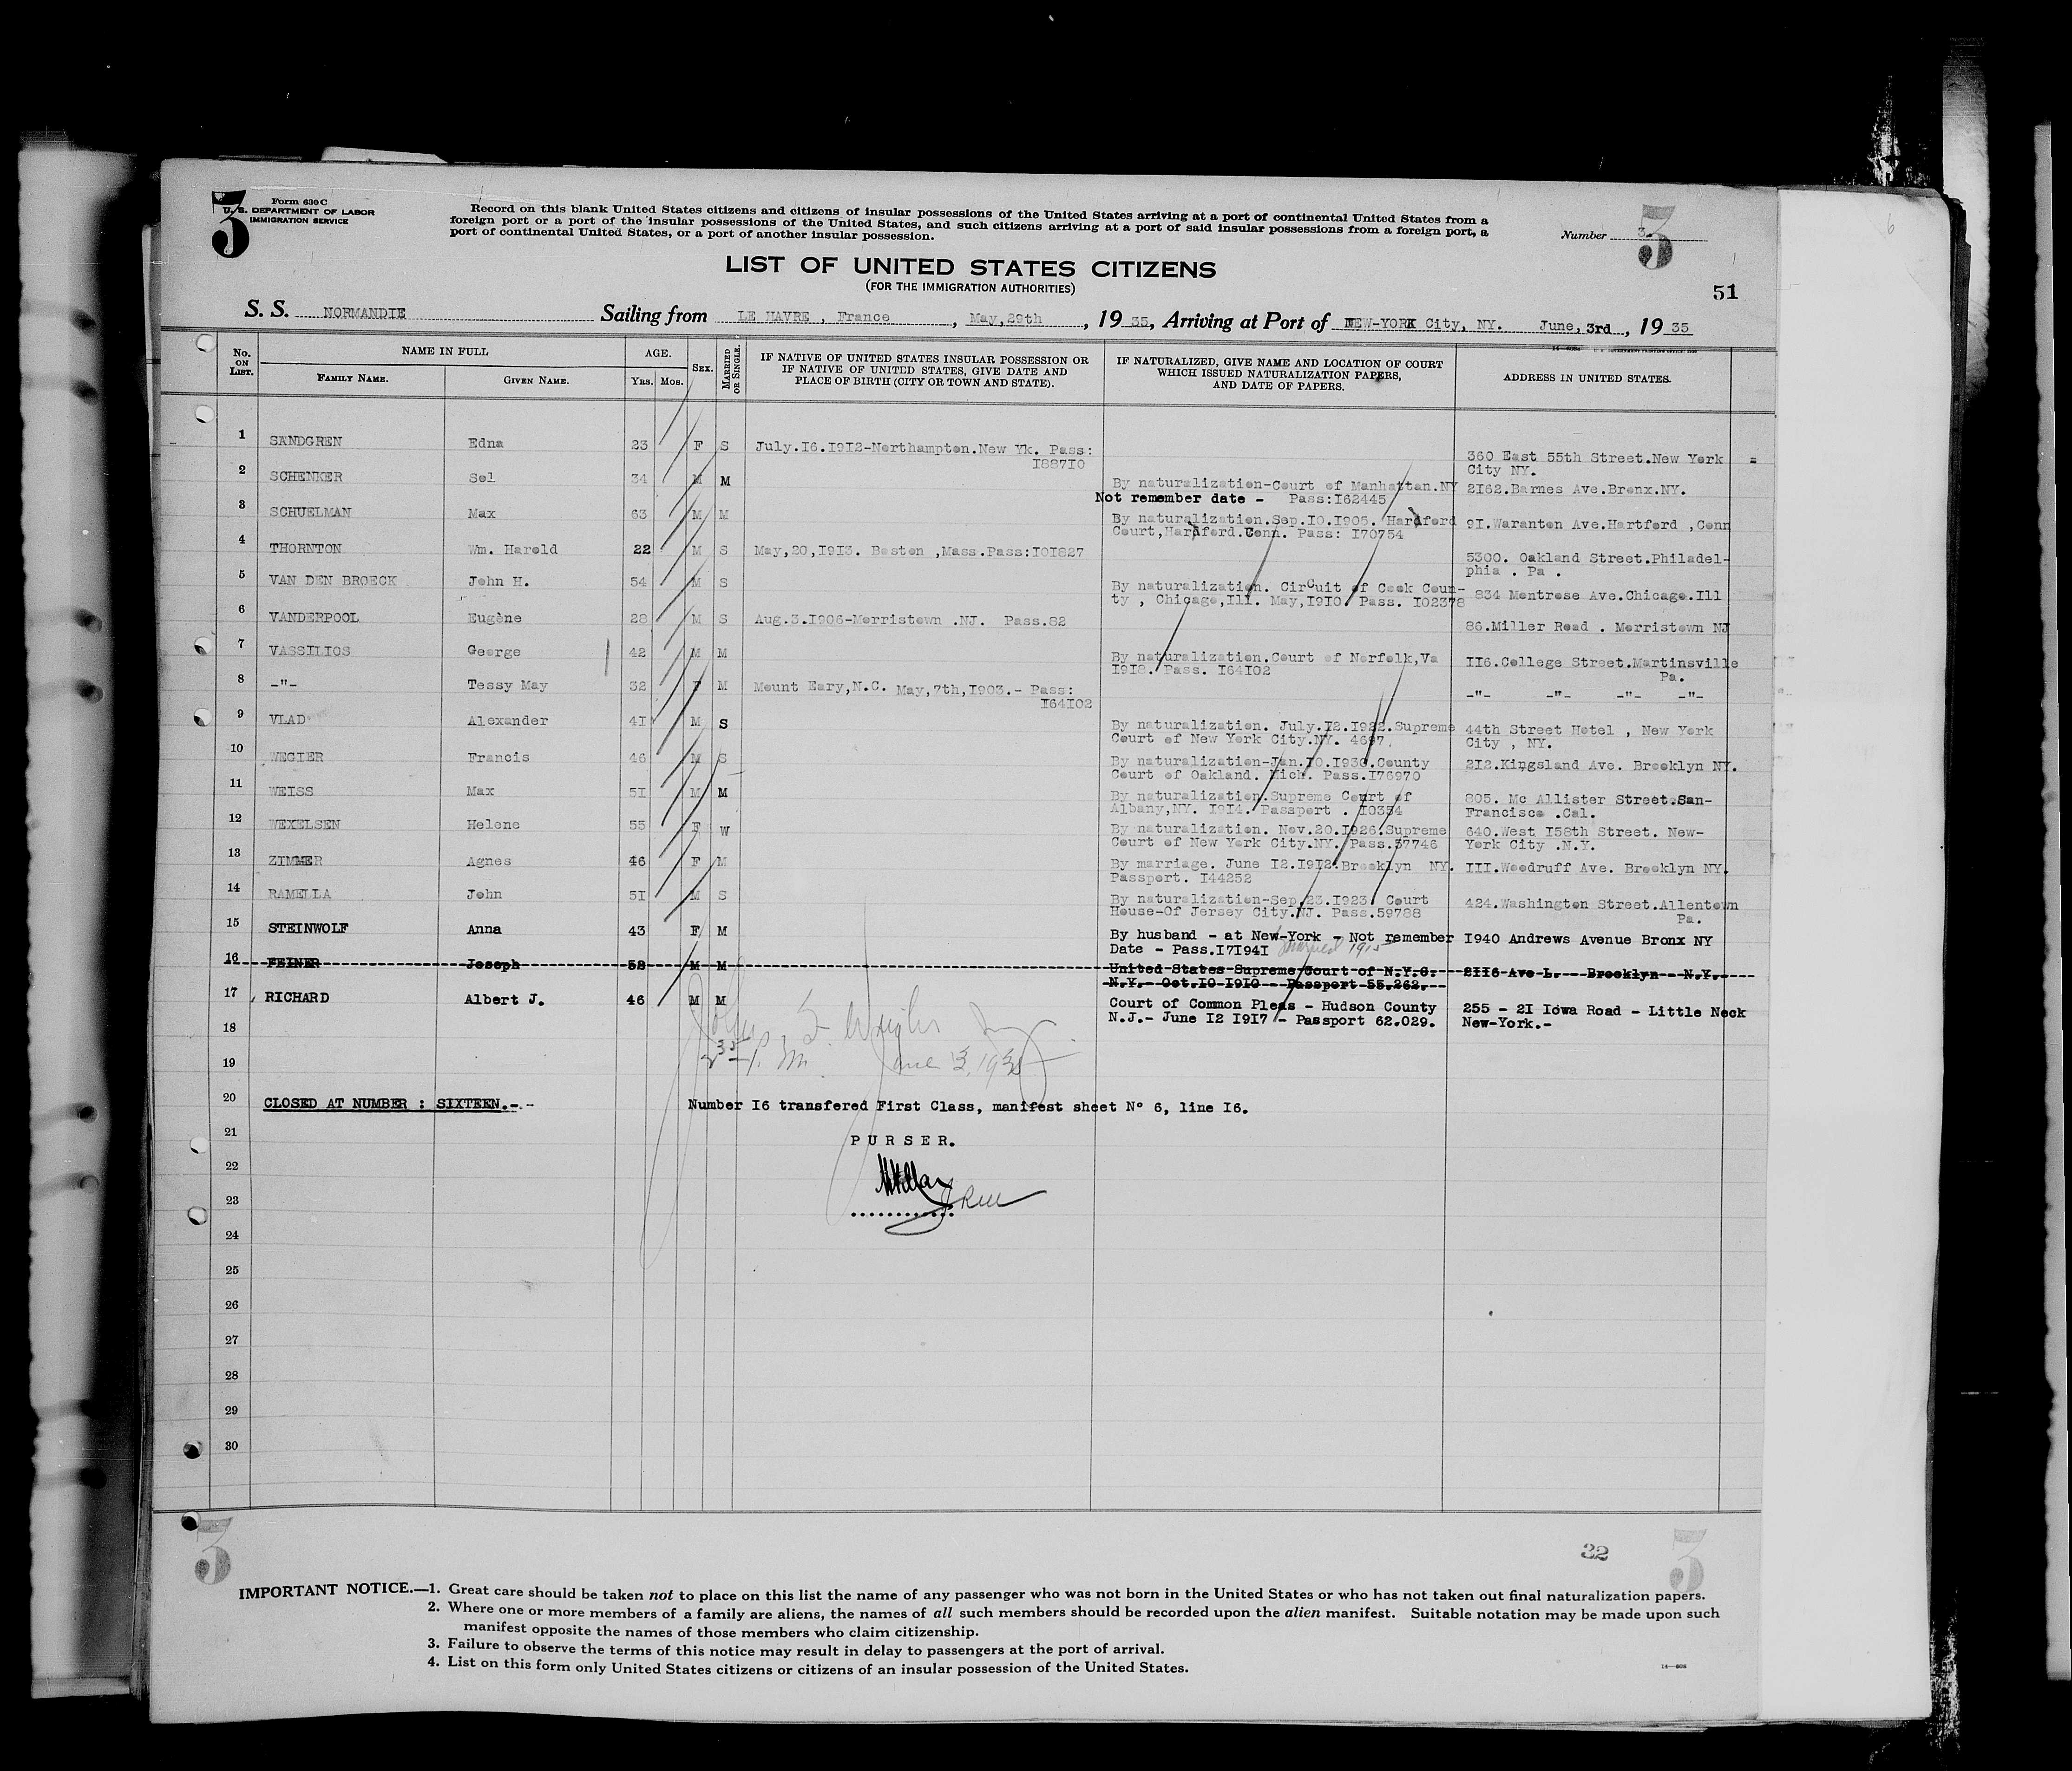 3
Form 630 C
U. S. DEPARTMENT OF LABOR
IMMIGRATION SERVICE
Record on this blank United States citizens and citizens of insular possessions of the United States arriving at a port of continental United States from a
foreign port or a port of the insular possessions of the United States, and such citizens arriving at a port of said insular possessions from a foreign port, a
port of continental United States, or a port of another insular possession.
Number 3.
3
LIST OF UNITED STATES CITIZENS
(FOR THE IMMIGRATION AUTHORITIES)
51
S. S. NORMANDIE Sailing from LE HAVRE , France , May,29th , 19 35, Arriving at Port of NEW-YORK City, NY. June, 3rd , 19 35
No. ON LIST. NAME IN FULL AGE. SEX. MARRIED OR SINGLE. IF NATIVE OF UNITED STATES INSULAR POSSESSION OR IF NATIVE OF UNITED STATES, GIVE DATE AND PLACE OF BIRTH (CITY OR TOWN AND STATE). IF NATURALIZED, GIVE NAME AND LOCATION OF COURT WHICH ISSUED NATURALIZATION PAPERS, AND DATE OF PAPERS. ADDRESS IN UNITED STATES.
FAMILY NAME. GIVEN NAME. YRS. MOS.
1 SANDGREN Edna 23 F S July.I6.I9I2-Northampton.New Yk. Pass:
I887I0
360 East 55th Street.New York =
City NY.
2 SCHENKER Sol 34 M M By naturalization-Court of Manhattan.NY 2I62.Barnes Ave.Bronx.NY.
Not remember date - Pass:I62445
3 SCHUELMAN Max 63 M M By naturalization.Sep.I0.I905. Hardford 9I.Waranton Ave.Hartford ,Conn
Court,Hardford.Conn. Pass: I70754
4 THORNTON Wm. Harold 22 M S May,20,I9I3. Boston ,Mass.Pass:I0I827
5300. Oakland Street.Philadel-
phia . Pa .
5 VAN DEN BROECK John H. 54 M S By naturalization. Circuit of Cook Coun-
ty , Chicago,Ill. May,I9I0. Pass. I02378 834 Montrose Ave.Chicago.Ill
6 VANDERPOOL Eugène 28 M S Aug.3.I906-Morristown .NJ. Pass.82
86.Miller Road . Morristown NJ
7 VASSILIOS George 42 M M By naturalization.Court of Norfolk,Va II6.College Street.Martinsville
I9I8. Pass. I64I02 Pa.
8 -"- Tessy May 32 F M Mount Eary,N.C. May,7th,I903.- Pass: -"- -"- -"- -"-
I64I02
9 VLAD Alexander 4I M S By naturalization. July.I2.I922.Supreme 44th Street Hotel , New York
Court of New York City.NY. 4697. City , NY.
10 WEGIER Francis 46 M S By naturalization-Jan.I0.I930.County 2I2.Kingsland Ave. Brooklyn NY.
Court of Oakland. Mich. Pass.I76970
11 WEISS Max 5I M M By naturalization.Supreme Court of 805. Mc Allister Street.San-
Albany,NY. I9I4. Passport . I0354 Francisco .Cal.
12 WEXELSEN Helene 55 F W By naturalization. Nov.20.I926.Supreme 640.West I58th Street. New-
Court of New York City.NY. Pass.57746 York City .N.Y.
13 ZIMMER Agnes 46 F M By marriage. June I2.I9I2.Brooklyn NY. III.Woodruff Ave. Brooklyn NY.
Passport. I44252
14 RAMELLA John 5I M S By naturalization-Sep.23.I923. Court 424.Washington Street.Allentown
House-Of Jersey City.NJ. Pass.59788 Pa.
15 STEINWOLF Anna 43 F M By husband - at New-York - Not remember I940 Andrews Avenue Bronx NY
Date - Pass.I7I94I married 1915
16 FEINER Joseph 52 M M United States Supreme Court of N.Y.C. 2II6 Ave L. Brooklyn N.Y.
N.Y. Oct.I0 I9I0 Passport 55.262.
17 RICHARD Albert J. 46 M M Court of Common Pleas - Hudson County 255 - 2I Iowa Road - Little Neck
N.J.- June I2 I917 - Passport 62.029. New-York.-
18
19 P. M. June 3, 1935
20 CLOSED AT NUMBER : SIXTEEN.-.- Number I6 transfered First Class, manifest sheet N° 6, line I6.
21 PURSER.
22
23
24
25
26
27
28
29
30
3 32 3
IMPORTANT NOTICE.—1. Great care should be taken not to place on this list the name of any passenger who was not born in the United States or who has not taken out final naturalization papers.
2. Where one or more members of a family are aliens, the names of all such members should be recorded upon the alien manifest. Suitable notation may be made upon such
manifest opposite the names of those members who claim citizenship.
3. Failure to observe the terms of this notice may result in delay to passengers at the port of arrival.
4. List on this form only United States citizens or citizens of an insular possession of the United States.